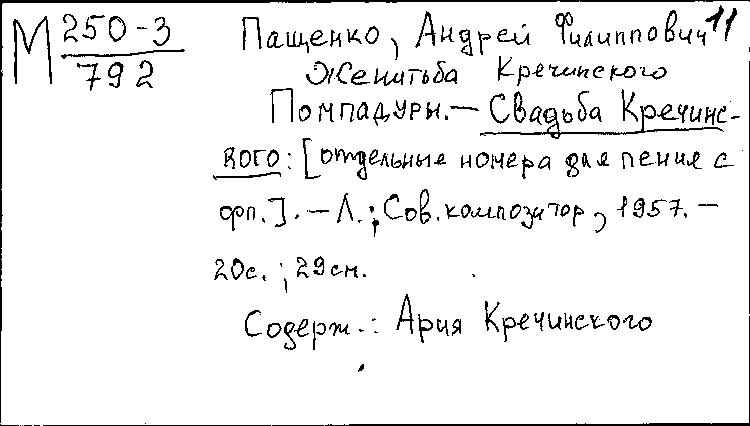 М 250-3
792
Пащенко, Андрей Филиппович 11
Женитьба Кречинского
Помпадуры. — Свадьба Кречинс-
кого: [отдельные номера для пения с
фп.]. — Л.; Сов. композитор, 1957. —
20с. ; 29см.
Содерж.: Ария Кречинского